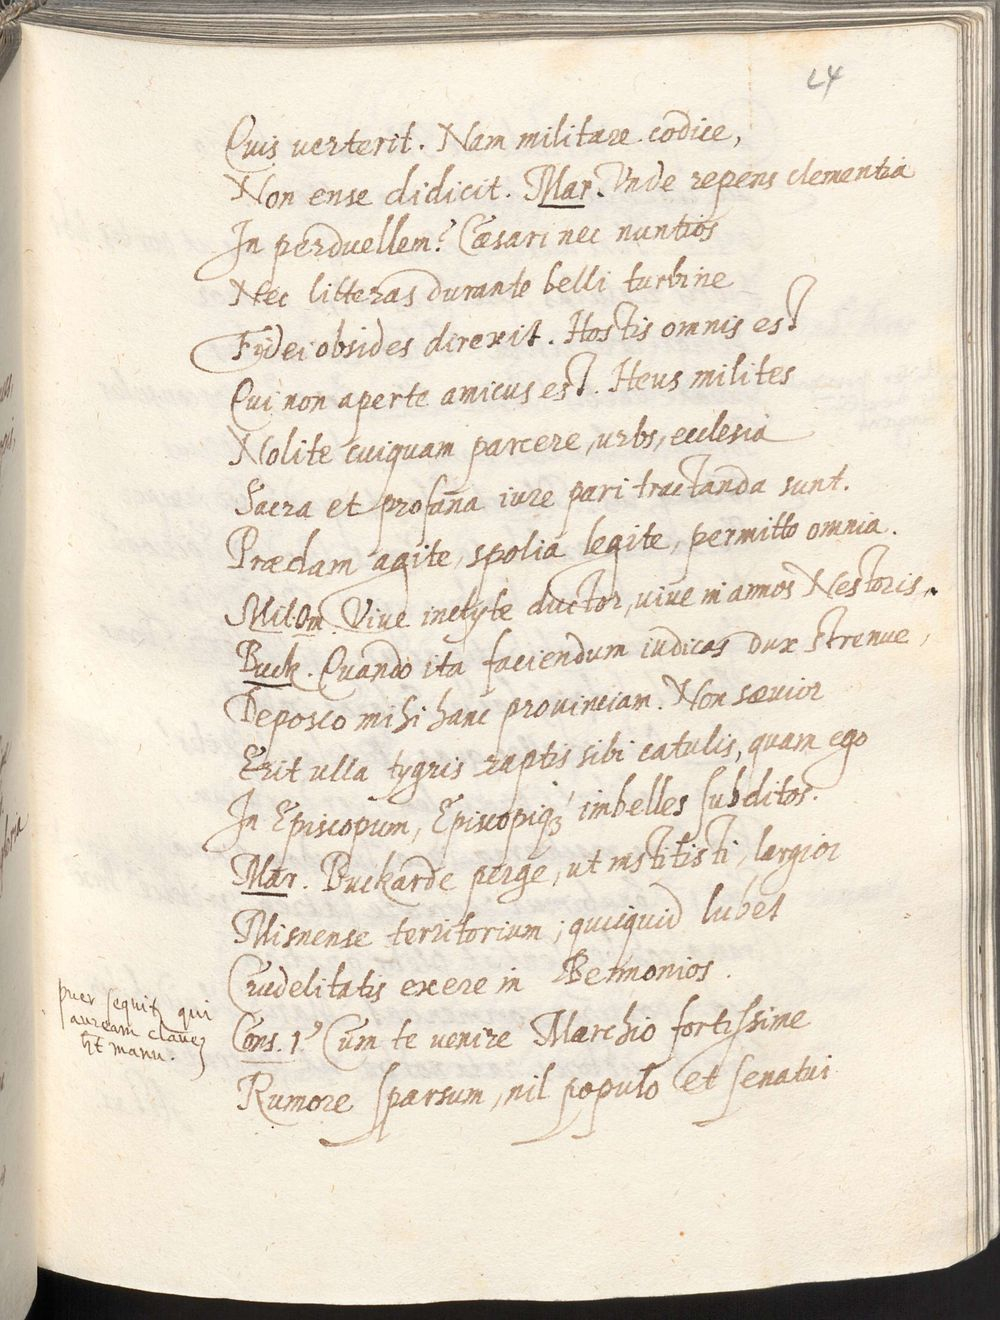 24
Quis verterit. Nam militare codice,
Non ense didicit. Mar. Vnde repens clementia
In perduellem? Cæsari nec nuntios
Nec litteras durante belli turbine
Fidei obsides direxit. Hostis omnis est
Qui non aperte amicus est. Heus milites
Nolite cuiquam parcere, urbs, ecclesia
Sacra et profana iure pari tractanda sunt.
Prædam agite, spolia legite, permitto omnia.
Mil. Om. Vive inclyte ductor, vive in annos Nestoris.
Buck. Quando ita faciendum iudicas dux strenue,
Deposco mihi hanc provinciam. Non sævior
Erit ulla tygris raptis sibi catulis, quam ego
In Episcopum, Episcopiq; imbelles subditos.
Mar. Buckarde perge, ut institisti, largior
Misnense territorium, quicquid lubet
Crudelitatis exere in Bennonios.
puer sequitr qui
auream clavem
ht manu.
Cons. 1.s Cum te venire Marchio fortissime
Rumore sparsum, nil populo et senatui